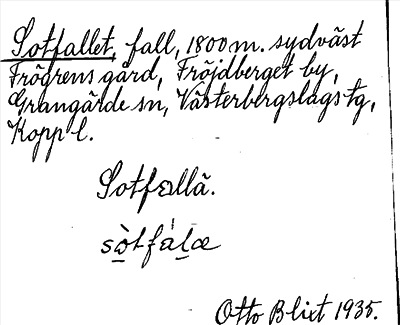 Sotfallet, fall, 1800 m. sydväst
Frögrens gård, Fröjdberget by,
Grangärde sn, Västerbergslags tg,
Kopp l.
Sotfallä.
sòtfálæ
Otto Blixt 1935.